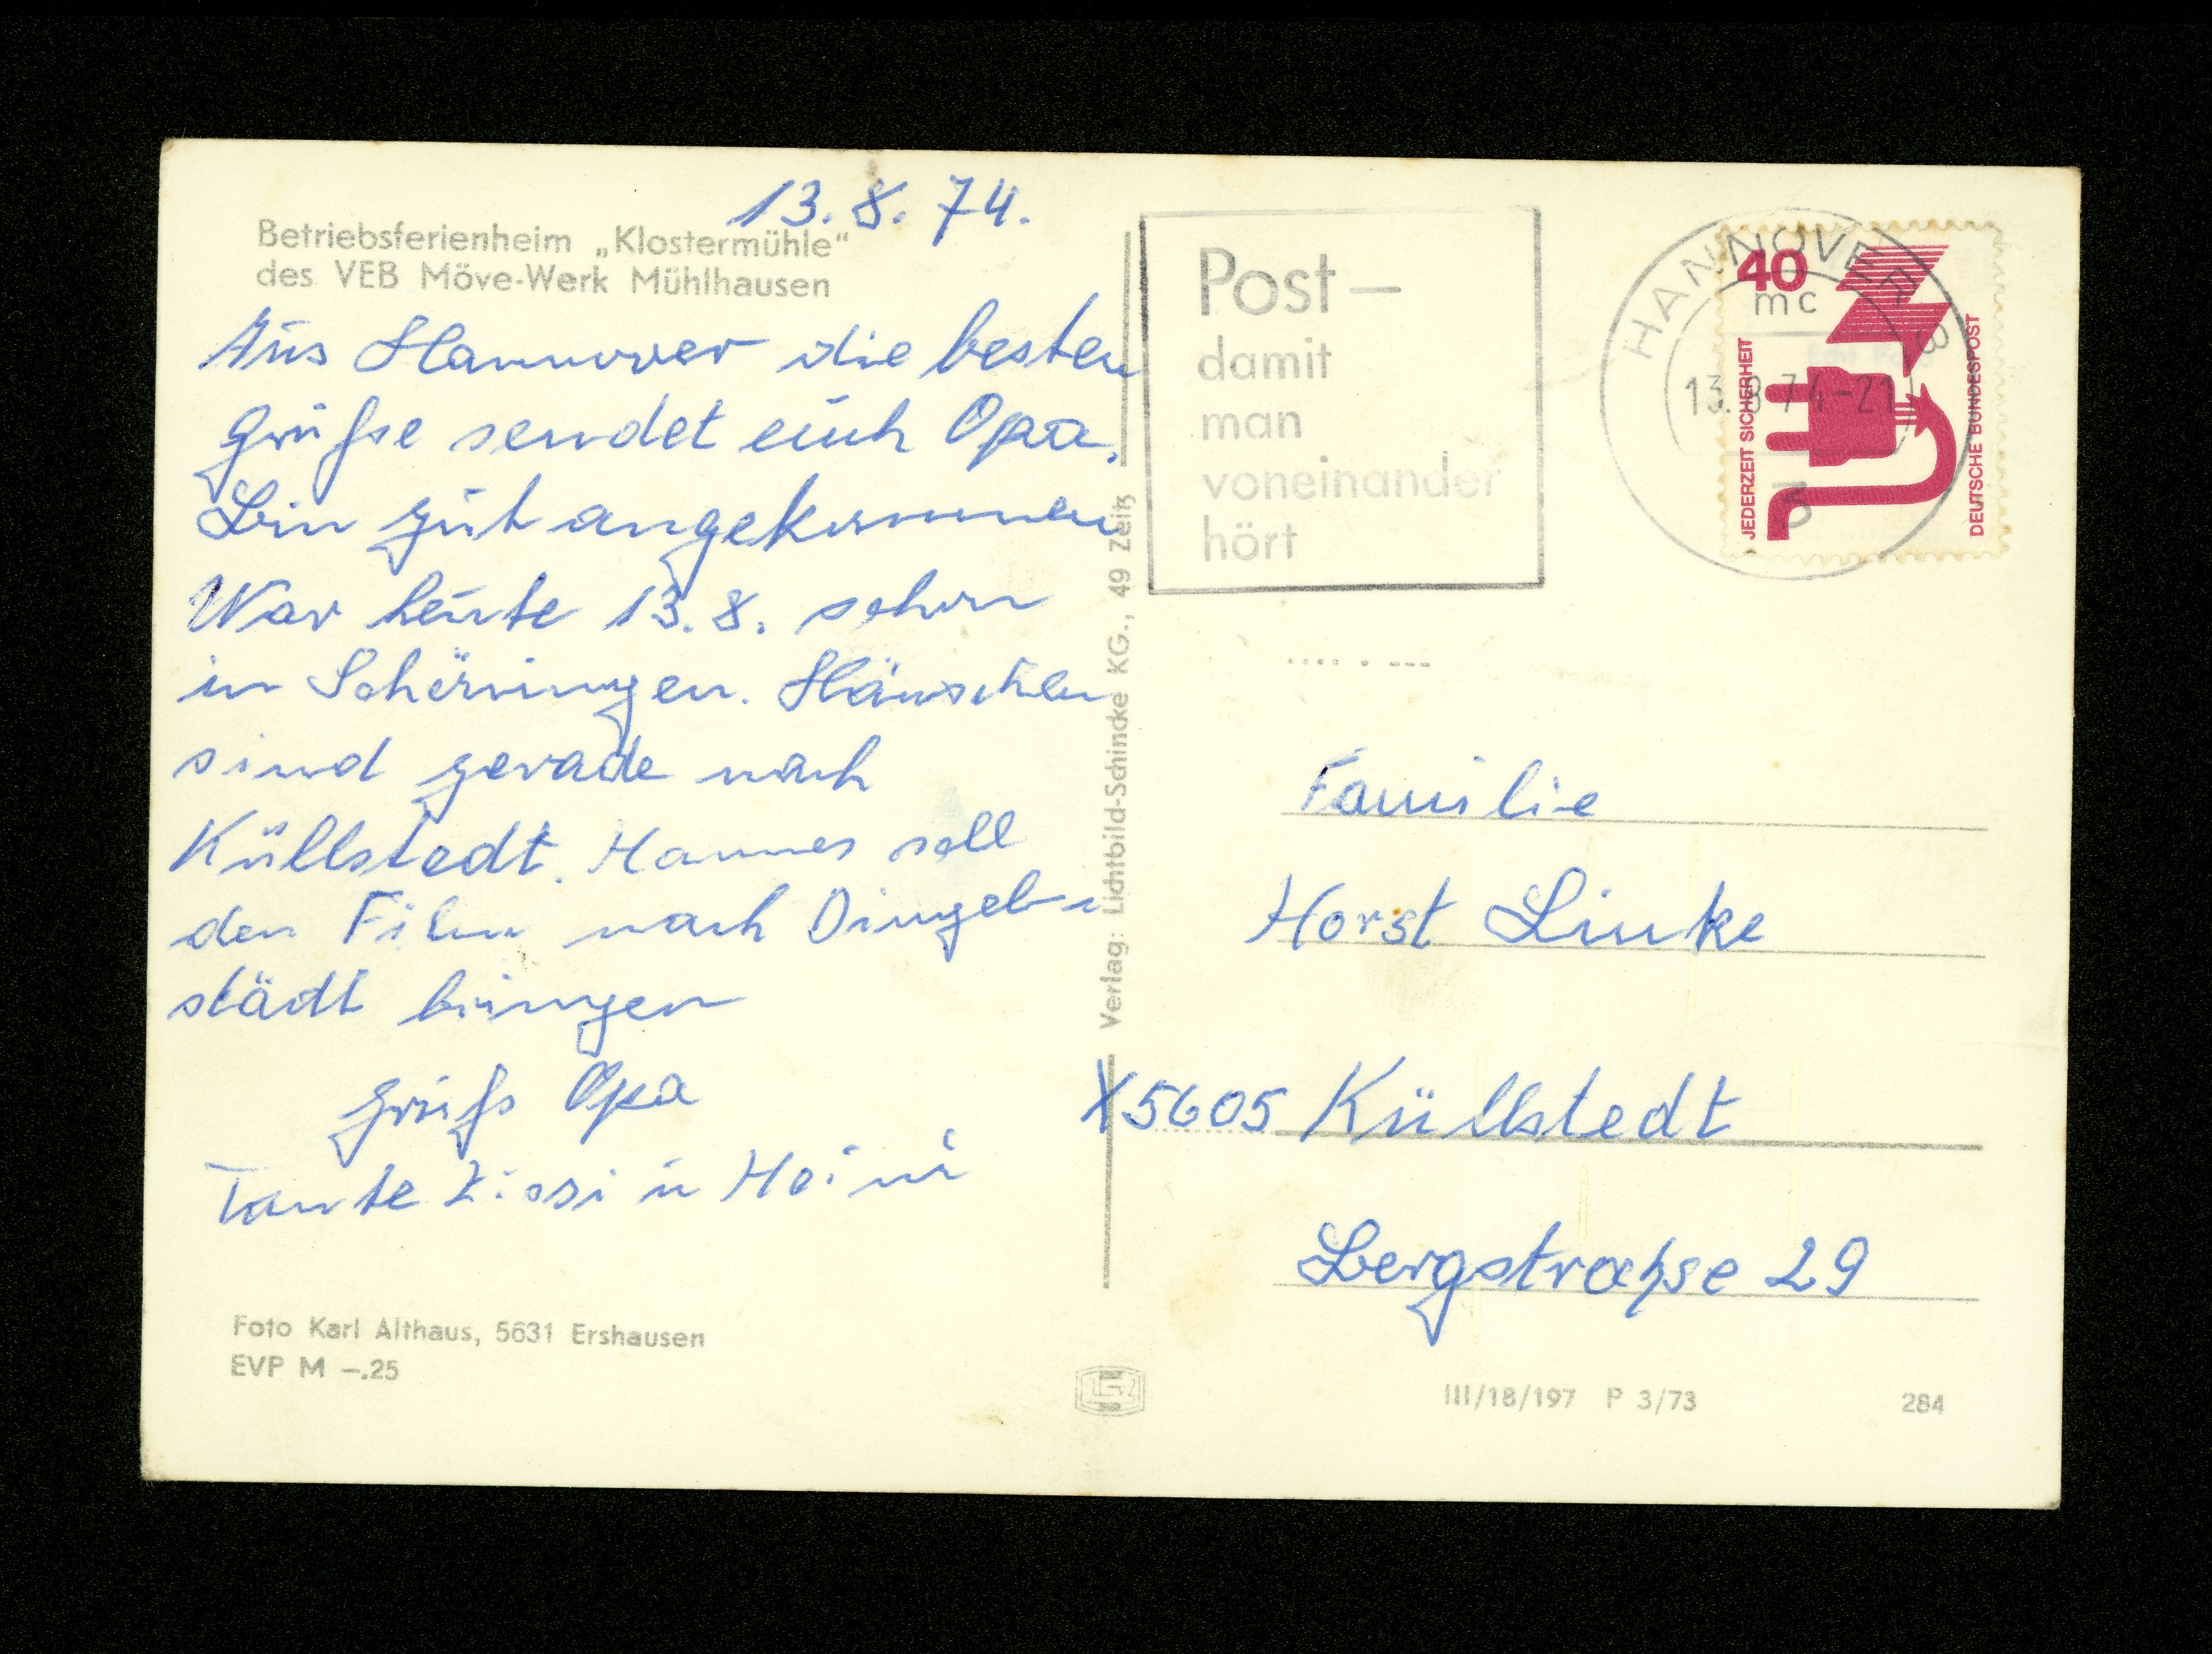 13. 8. 74.
Betriebsferienheim „Klostermühle“
des VEB Möve-Werk Mühlhausen
Aus Hannover die besten
Grüße sendet euch Opa.
Bin gut angekommen
War heute 13. 8. schon
in Schöningen. Hänschen
sind gerade nach
Küllstedt. Hannes soll
den Film nach Dingel-
städt bringen
Gruß Opa
Tante Lissi u Heini
Foto Karl Althaus, 5631 Ershausen
EVP M –.25
Verlag: Lichtbild-Schincke KG., 49 Zeitz
Post –
damit
man
voneinander
hört
HANNOVER
mc
13.8.74-21
3
40
JEDERZEIT SICHERHEIT
DEUTSCHE BUNDESPOST
Familie
Horst Linke
X5605 Küllstedt
Bergstraße 29
III/18/197 P 3/73
284